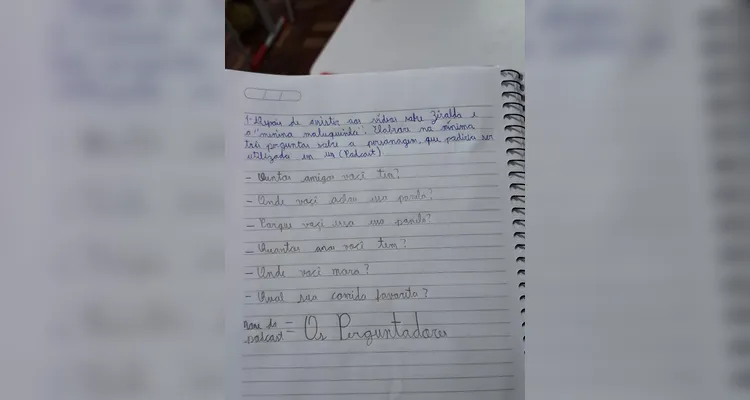 1- Depois de assistir aos vídeos sobre Ziraldo e
o "menino maluquinho". Elabore no mínimo
três perguntas sobre a personagem, que poderia ser
utilizada em um (Podcast)
- Quantos amigos voci tem?
- Onde voçi achou sua panela?
- Porque voçi usa sua panela?
- Quantos anos voci tem?
- Onde voci mora?
- Qual sua comida favorita?
Nome do
podcast - Os Perguntadores